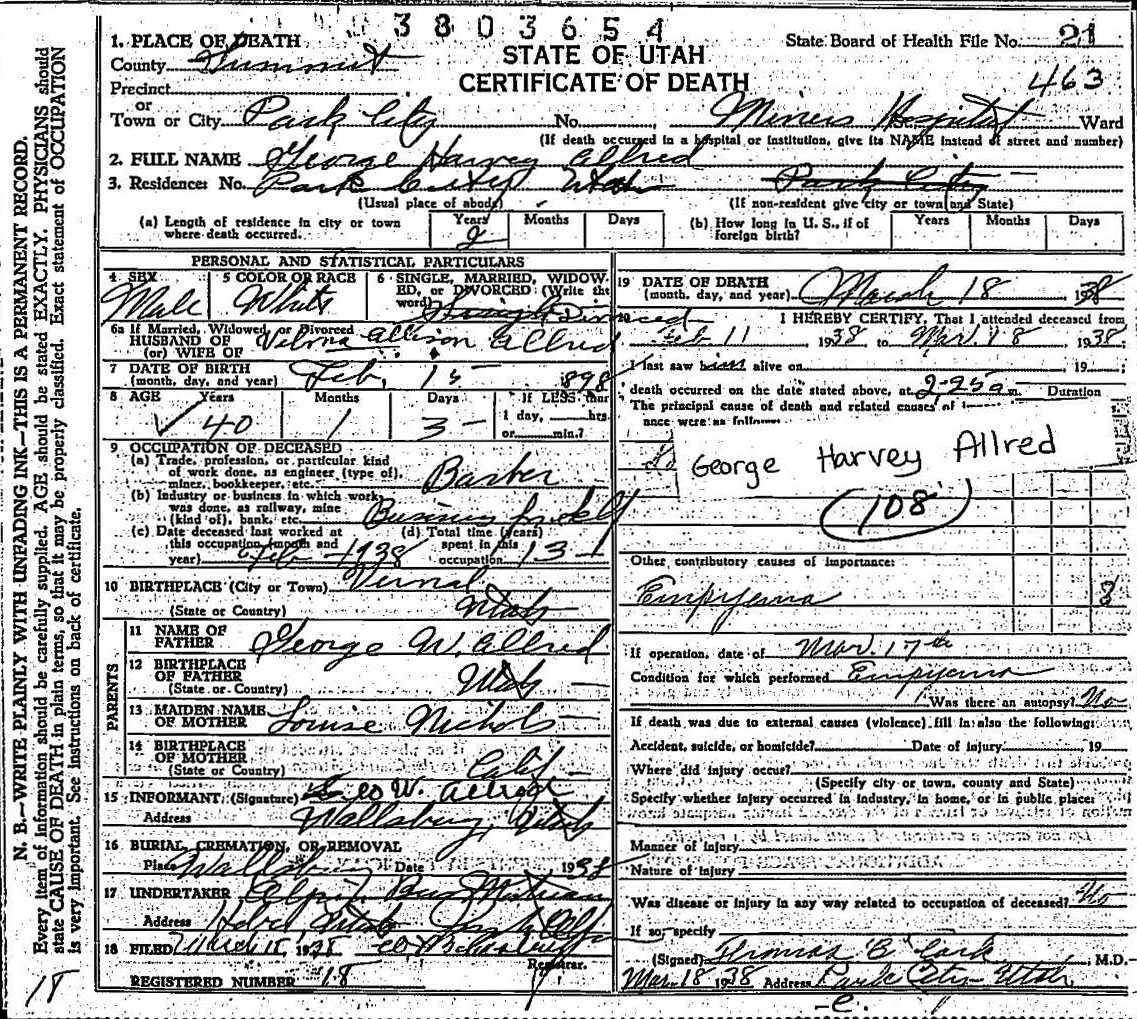 3803654
1. PLACE OF DEATH
STATE OF UTAH
State Board of Health File No. 21
County Summit
CERTIFICATE OF DEATH
463
Precinct
or
Town or City Park City No. Miners Hospital Ward
(If death occurred in a hospital or institution, give its NAME instead of street and number)
2. FULL NAME George Harvey Allred
3. Residence: No. Park City Utah Park City
(Usual place of abode) (If non-resident give city or town and State)
(a) Length of residence in city or town where death occurred. Years 2 Months Days
(b) How long in U. S., if of foreign birth? Years Months Days
PERSONAL AND STATISTICAL PARTICULARS
4 SEX Male
5 COLOR OR RACE White
6 SINGLE, MARRIED, WIDOWED, or DIVORCED: (Write the word) Divorced
6a If Married, Widowed, or Divorced
HUSBAND OF Velma Allison Allred
(or) WIFE OF
7 DATE OF BIRTH
(month, day, and year) Feb. 15 1898
8 AGE Years 40 Months 1 Days 3 If LESS than 1 day, hrs. or min.?
9 OCCUPATION OF DECEASED
(a) Trade, profession, or particular kind of work done, as engineer (type of), miner, bookkeeper, etc. Barber
(b) Industry or business in which work was done, as railway, mine (kind of), bank, etc. Business
(c) Date deceased last worked at this occupation (month and year) Feb 1938
(d) Total time (years) spent in this occupation 13
10 BIRTHPLACE (City or Town) Vernal
(State or Country) Utah
PARENTS
11 NAME OF FATHER George W. Allred
12 BIRTHPLACE OF FATHER
(State or Country) Utah
13 MAIDEN NAME OF MOTHER Louise Nichols
14 BIRTHPLACE OF MOTHER
(State or Country) Calif
15 INFORMANT (Signature) Geo W. Allred
Address Wallsburg, Utah
16 BURIAL, CREMATION, OR REMOVAL
Place Wallsburg Date 1938
17 UNDERTAKER
Address Heber Utah
18 FILED March 18, 1938
Registrar.
REGISTERED NUMBER 18
19 DATE OF DEATH
(month, day, and year) March 18 1938
20 I HEREBY CERTIFY, That I attended deceased from
Feb 11 1938 to Mar. 18, 1938
I last saw him alive on 19
death occurred on the date stated above, at 2-25 a m. Duration
The principal cause of death and related causes of
ance were as follows
George Harvey Allred
108
Other contributory causes of importance:
Empyema
If operation, date of Mar. 17th
Condition for which performed Empyema
Was there an autopsy? No
If death was due to external causes (violence) fill in also the following:
Accident, suicide, or homicide? Date of injury , 19
Where did injury occur?
(Specify city or town, county and State)
Specify whether injury occurred in industry, in home, or in public place:
Manner of injury
Nature of injury
Was disease or injury in any way related to occupation of deceased? No
If so, specify
(Signed) Thomas M.D.
Mar. 18 1938 Address Park City Utah
N. B.—WRITE PLAINLY WITH UNFADING INK—THIS IS A PERMANENT RECORD.
Every item of information should be carefully supplied. AGE should be stated EXACTLY. PHYSICIANS should
state CAUSE OF DEATH in plain terms, so that it may be properly classified. Exact statement of OCCUPATION
is very important. See instructions on back of certificate.
18